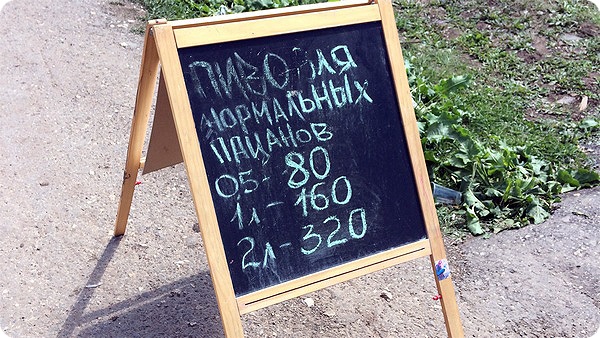 ПИВО для
НОРМАЛЬНЫХ
ПАЦАНОВ
05- 80
1л - 160
2л - 320